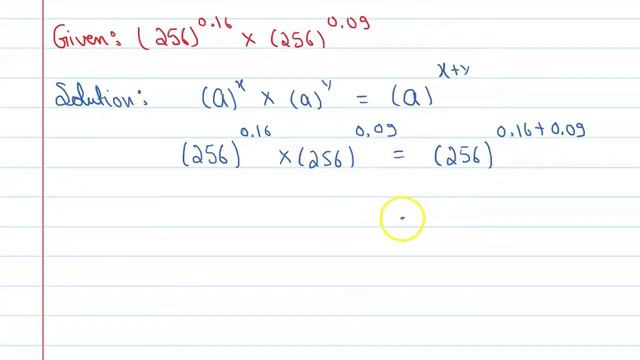 Given: (256)^0.16 × (256)^0.09
Solution: (a)^x × (a)^y = (a)^x+y
(256)^0.16 × (256)^0.09 = (256)^0.16+0.09